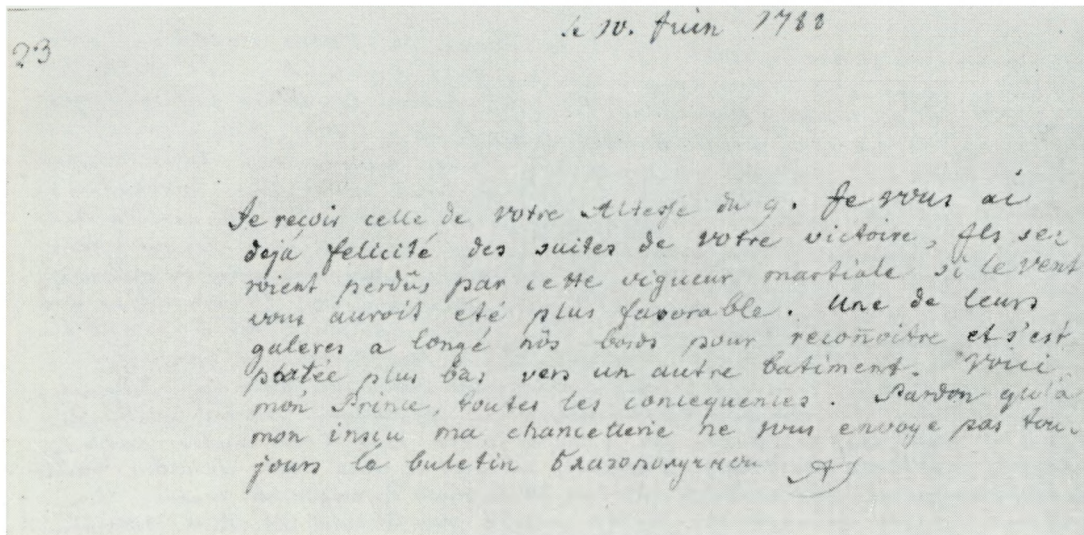 le 10. Juin 1788
23
Je reçois celle de votre Altesse du 9. Je vous ai
dejà felicité des suites de votre victoire, Ils se-
roient perdûs par cette vigueur martiale si le vent
vous auroit été plus favorable. Une de leurs
galeres a longé nôs bords pour reconoitre et s'est
portée plus bas vers un autre batiment. Voici
mon Prince, toutes les consequences. Pardon qu'à
mon insçu ma chancellerie ne vous envoye pas tou-
jours le buletin Благополучнои